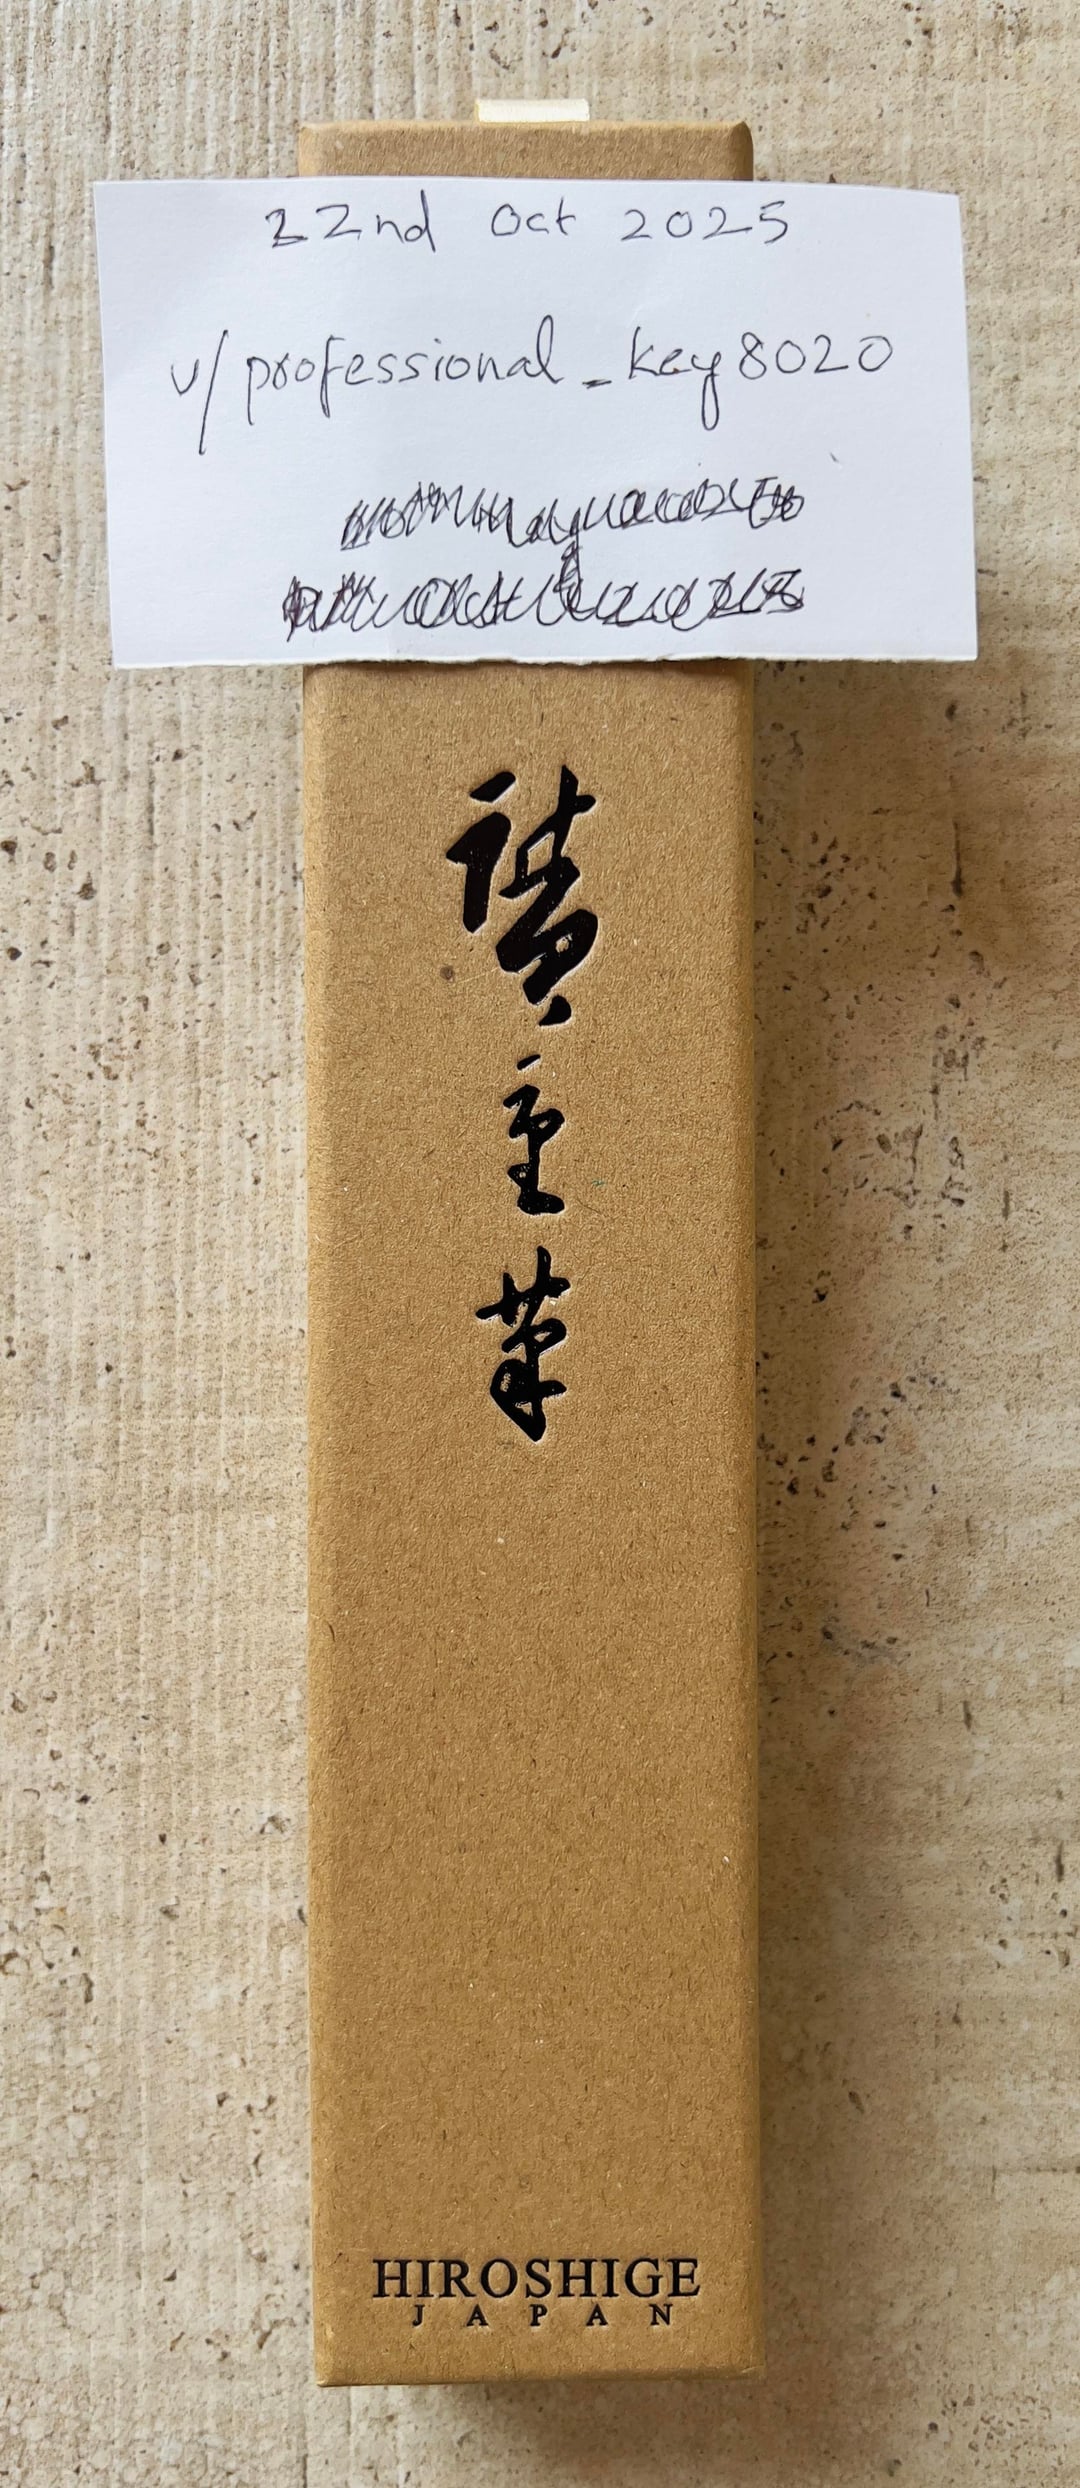 22nd Oct 2025
u/professional_key8020
廣重筆
HIROSHIGE
JAPAN